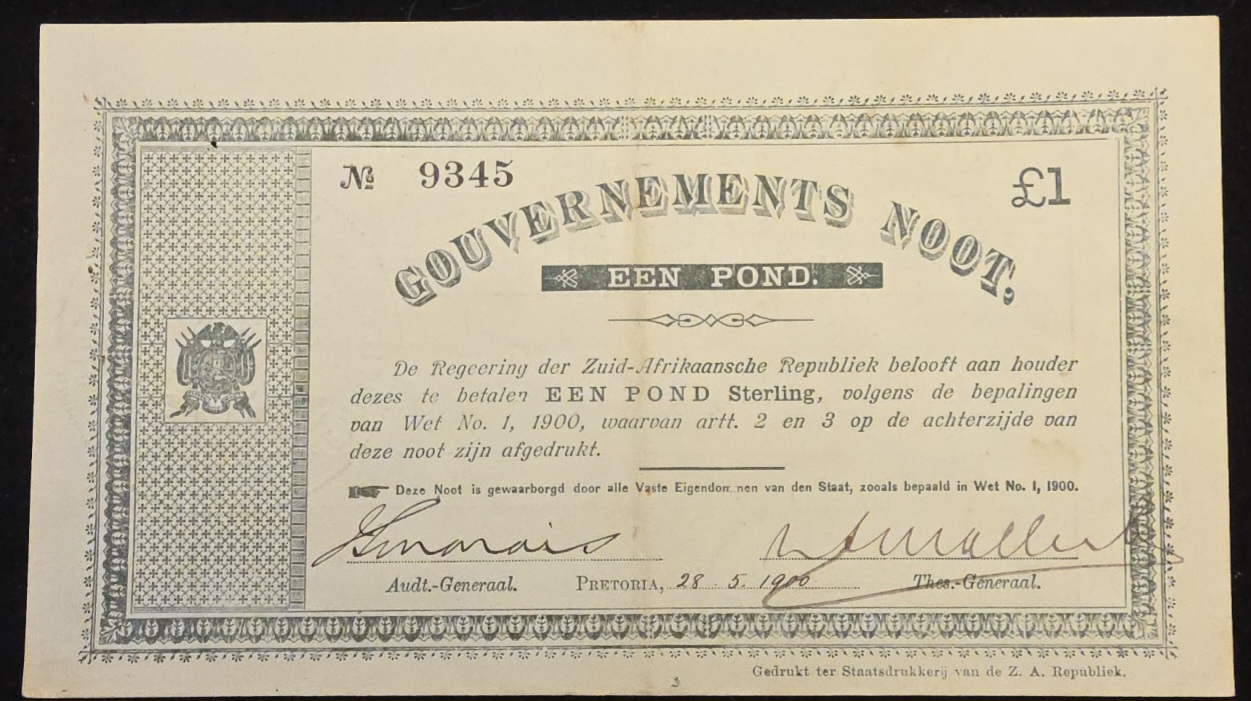 № 9345
£1
GOUVERNEMENTS NOOT.
EEN POND.
De Regeering der Zuid-Afrikaansche Republiek belooft aan houder
dezes te betalen EEN POND Sterling, volgens de bepalingen
van Wet No. 1, 1900, waarvan artt. 2 en 3 op de achterzijde van
deze noot zijn afgedrukt.
Deze Noot is gewaarborgd door alle Vaste Eigendommen van den Staat, zooals bepaald in Wet No. 1, 1900.
Audt.-Generaal. PRETORIA, 28 . 5. 1900 Thes.-Generaal.
Gedrukt ter Staatsdrukkerij van de Z. A. Republiek.